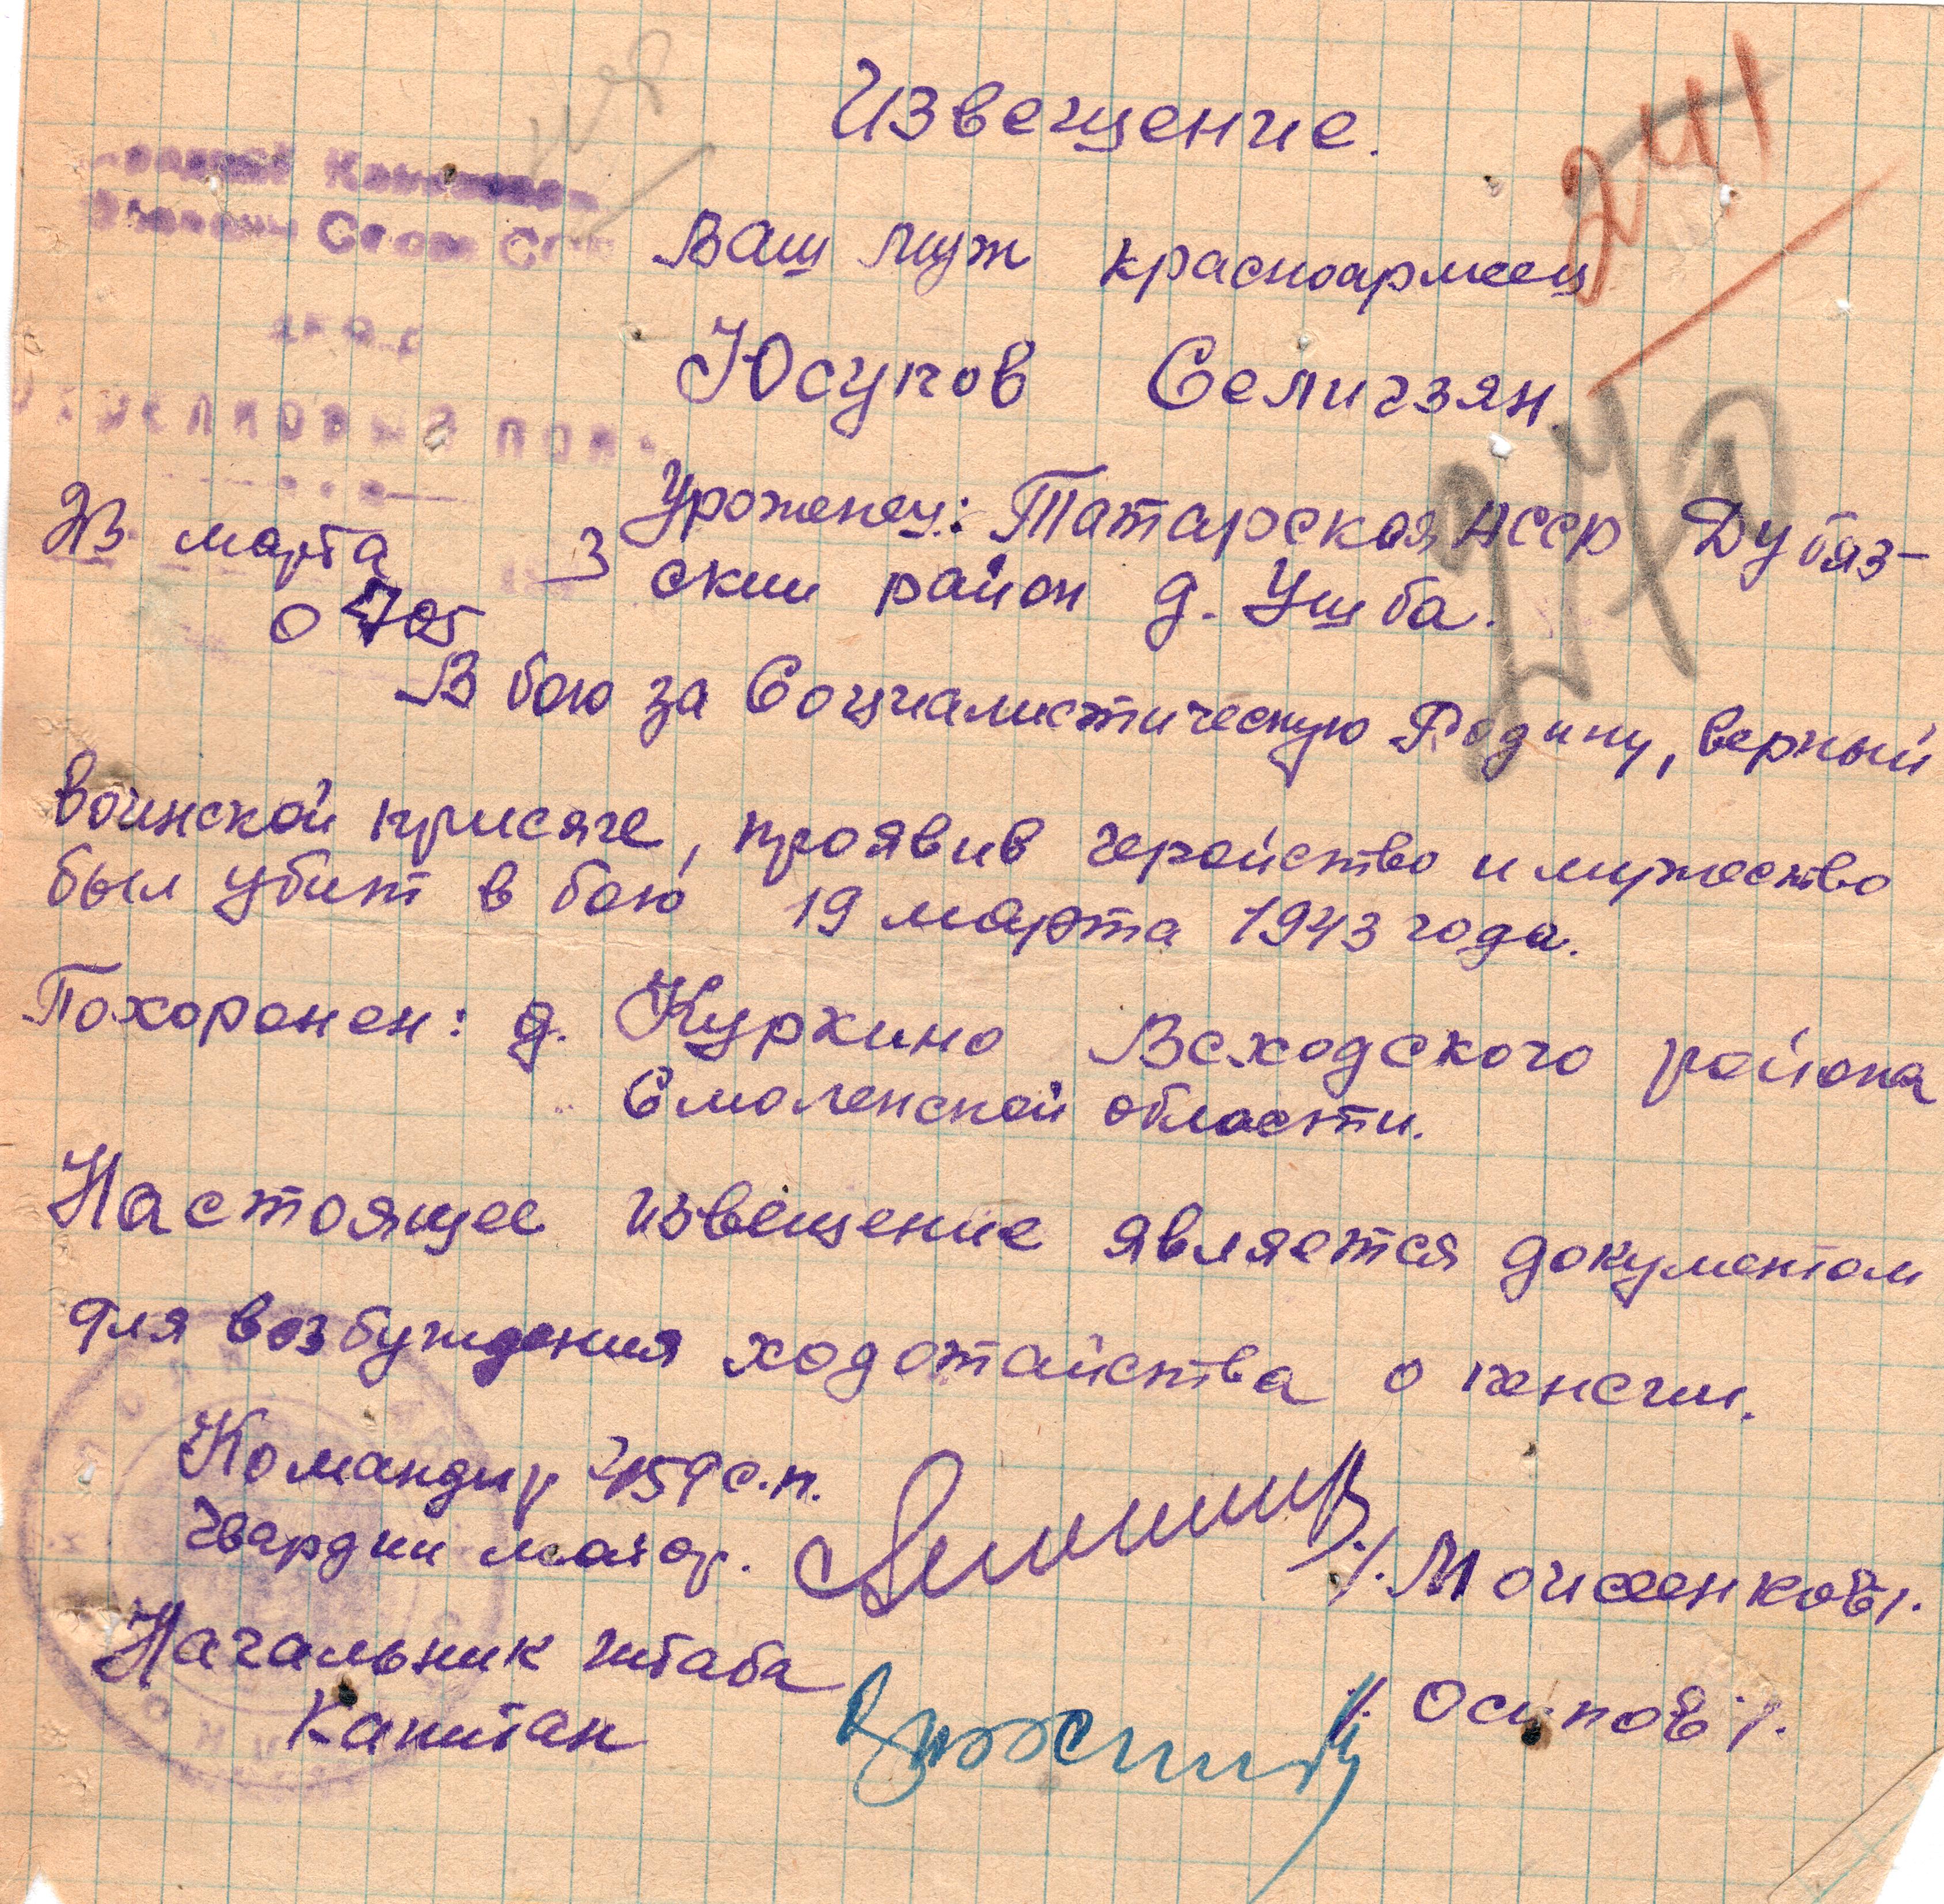 Извещение.
241
Ваш муж красноармеец
Юсупов Селигзян
270
Уроженец: Татарская АССР Дубяз-
ский район д. Ушба.
23 марта 3
0705
В бою за Социалистическую Родину, верный
воинской присяге, проявив геройство и мужество
был убит в бою 19 марта 1943 года.
Похоронен: д. Куркино Всходского района
Смоленской области.
Настоящее извещение является документом
для возбуждения ходотайства о пенсии.
Командир 459 с.п.
гвардии майор.
Начальник штаба
Капитан
/. Осипов /.